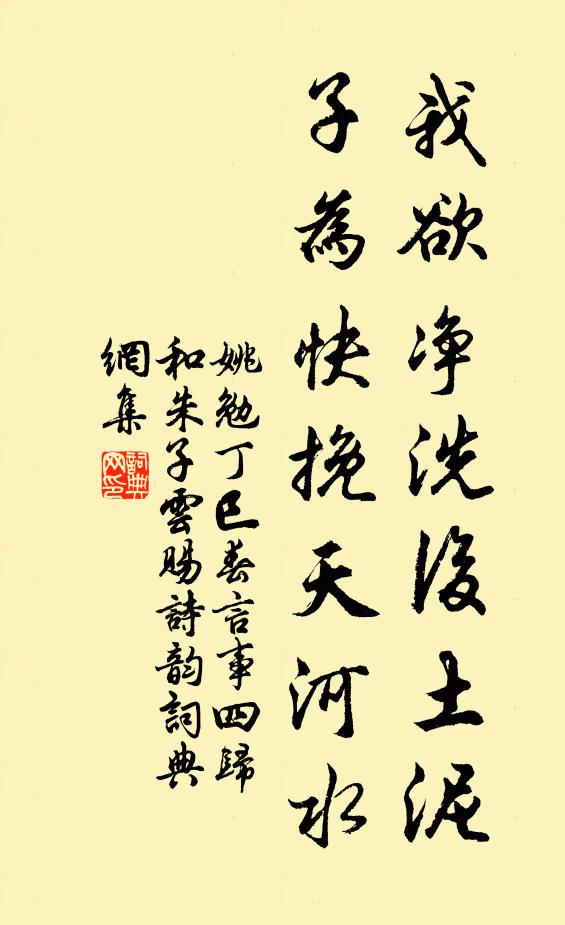 我欲净洗後土泥
子為快挽天河水
姚勉丁巳春言事四歸
和朱子雲賜詩韵詞典
網集
詞典
网印